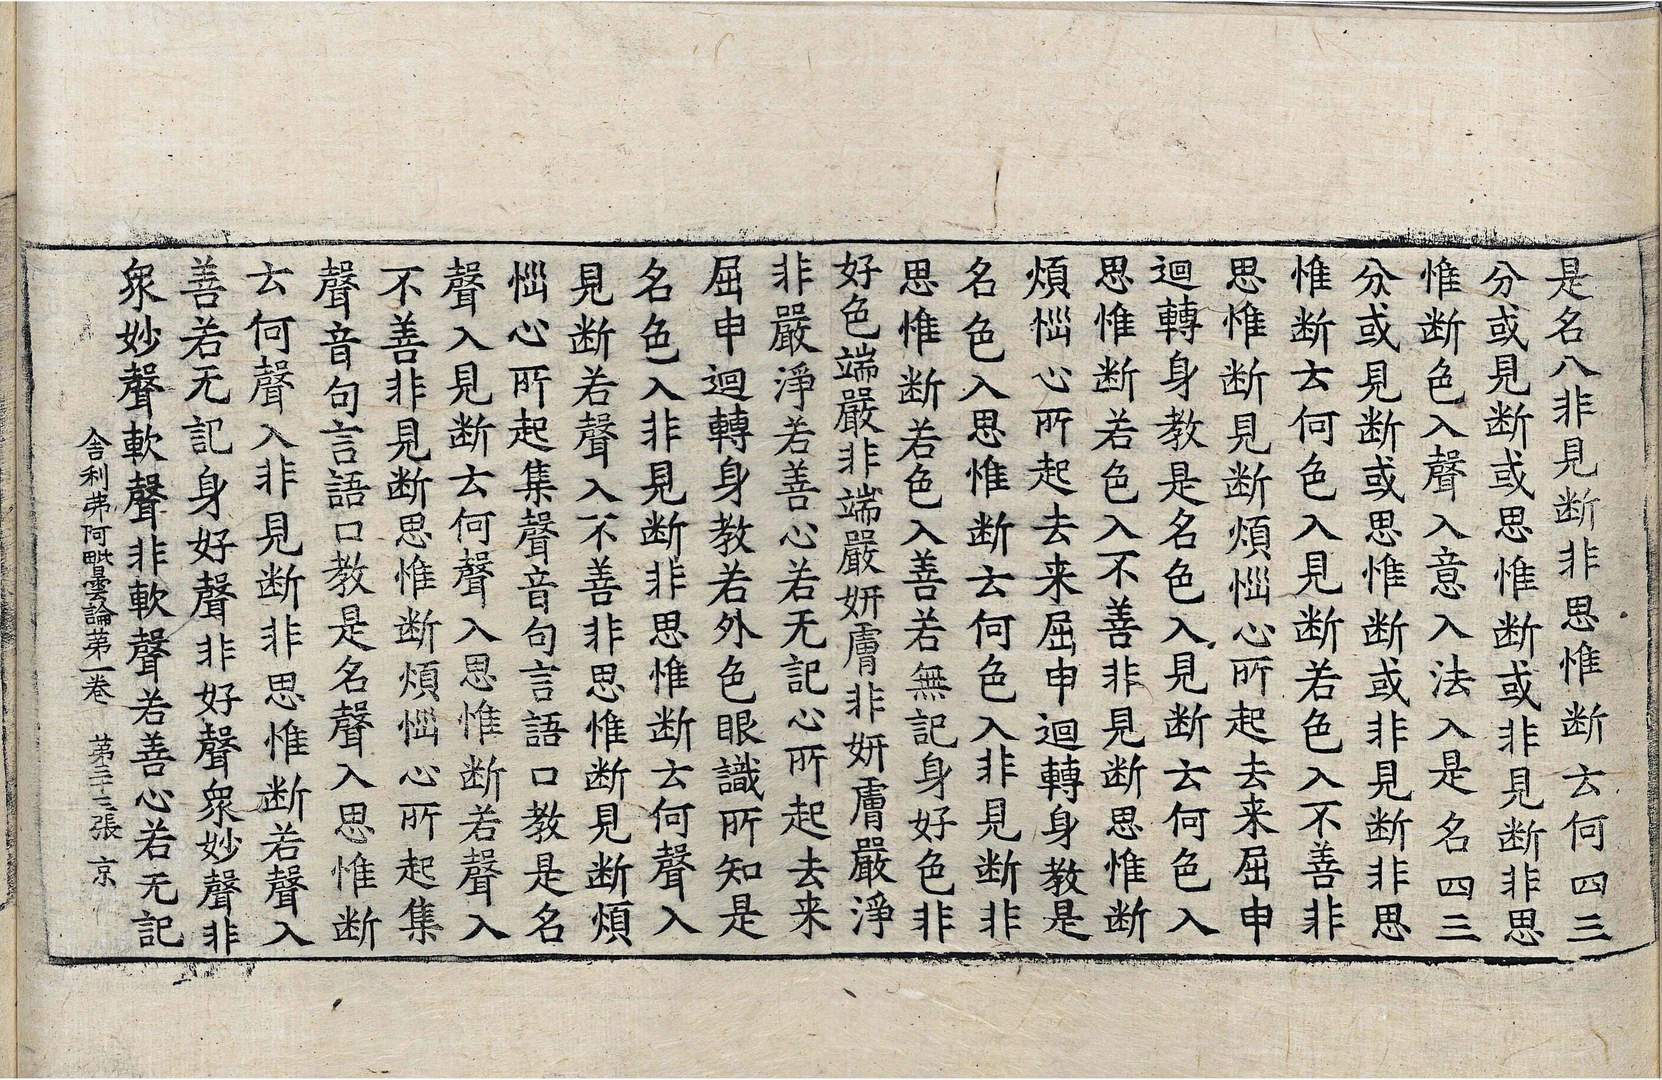 是名八非見断非思惟断云何四三
分或見断或思惟断或非見断非思
惟断色入聲入意入法入是名四三
分或見断或思惟断或非見断非思
惟断云何色入見断若色入不善非
思惟断見断煩惱心所起去来屈申
迴轉身教是名色入見断云何色入
思惟断若色入不善非見断思惟断
煩惱心所起去来屈申迴轉身教是
名色入思惟断云何色入非見断非
思惟断若色入善若無記身好色非
好色端嚴非端嚴妍膚非妍膚嚴淨
非嚴淨若善心若无記心所起去来
屈申迴轉身教若外色眼識所知是
名色入非見断非思惟断云何聲入
見断若聲入不善非思惟断見断煩
惱心所起集聲音句言語口教是名
聲入見断云何聲入思惟断若聲入
不善非見断思惟断煩惱心所起集
聲音句言語口教是名聲入思惟断
云何聲入非見断非思惟断若聲入
善若无記身好聲非好聲衆妙聲非
衆妙聲軟聲非軟聲若善心若无記
舍利弗阿毗曇論第一卷 第三十二張 京